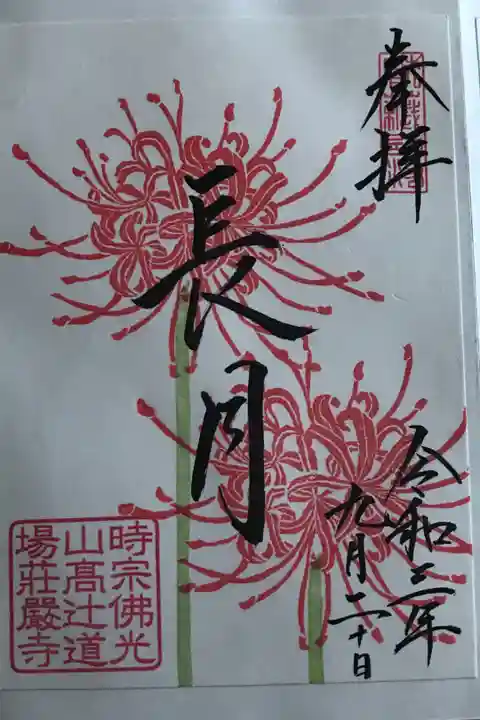 奉拝
長月
令和三年
九月二十日
時宗佛光
山高辻道
場莊嚴寺